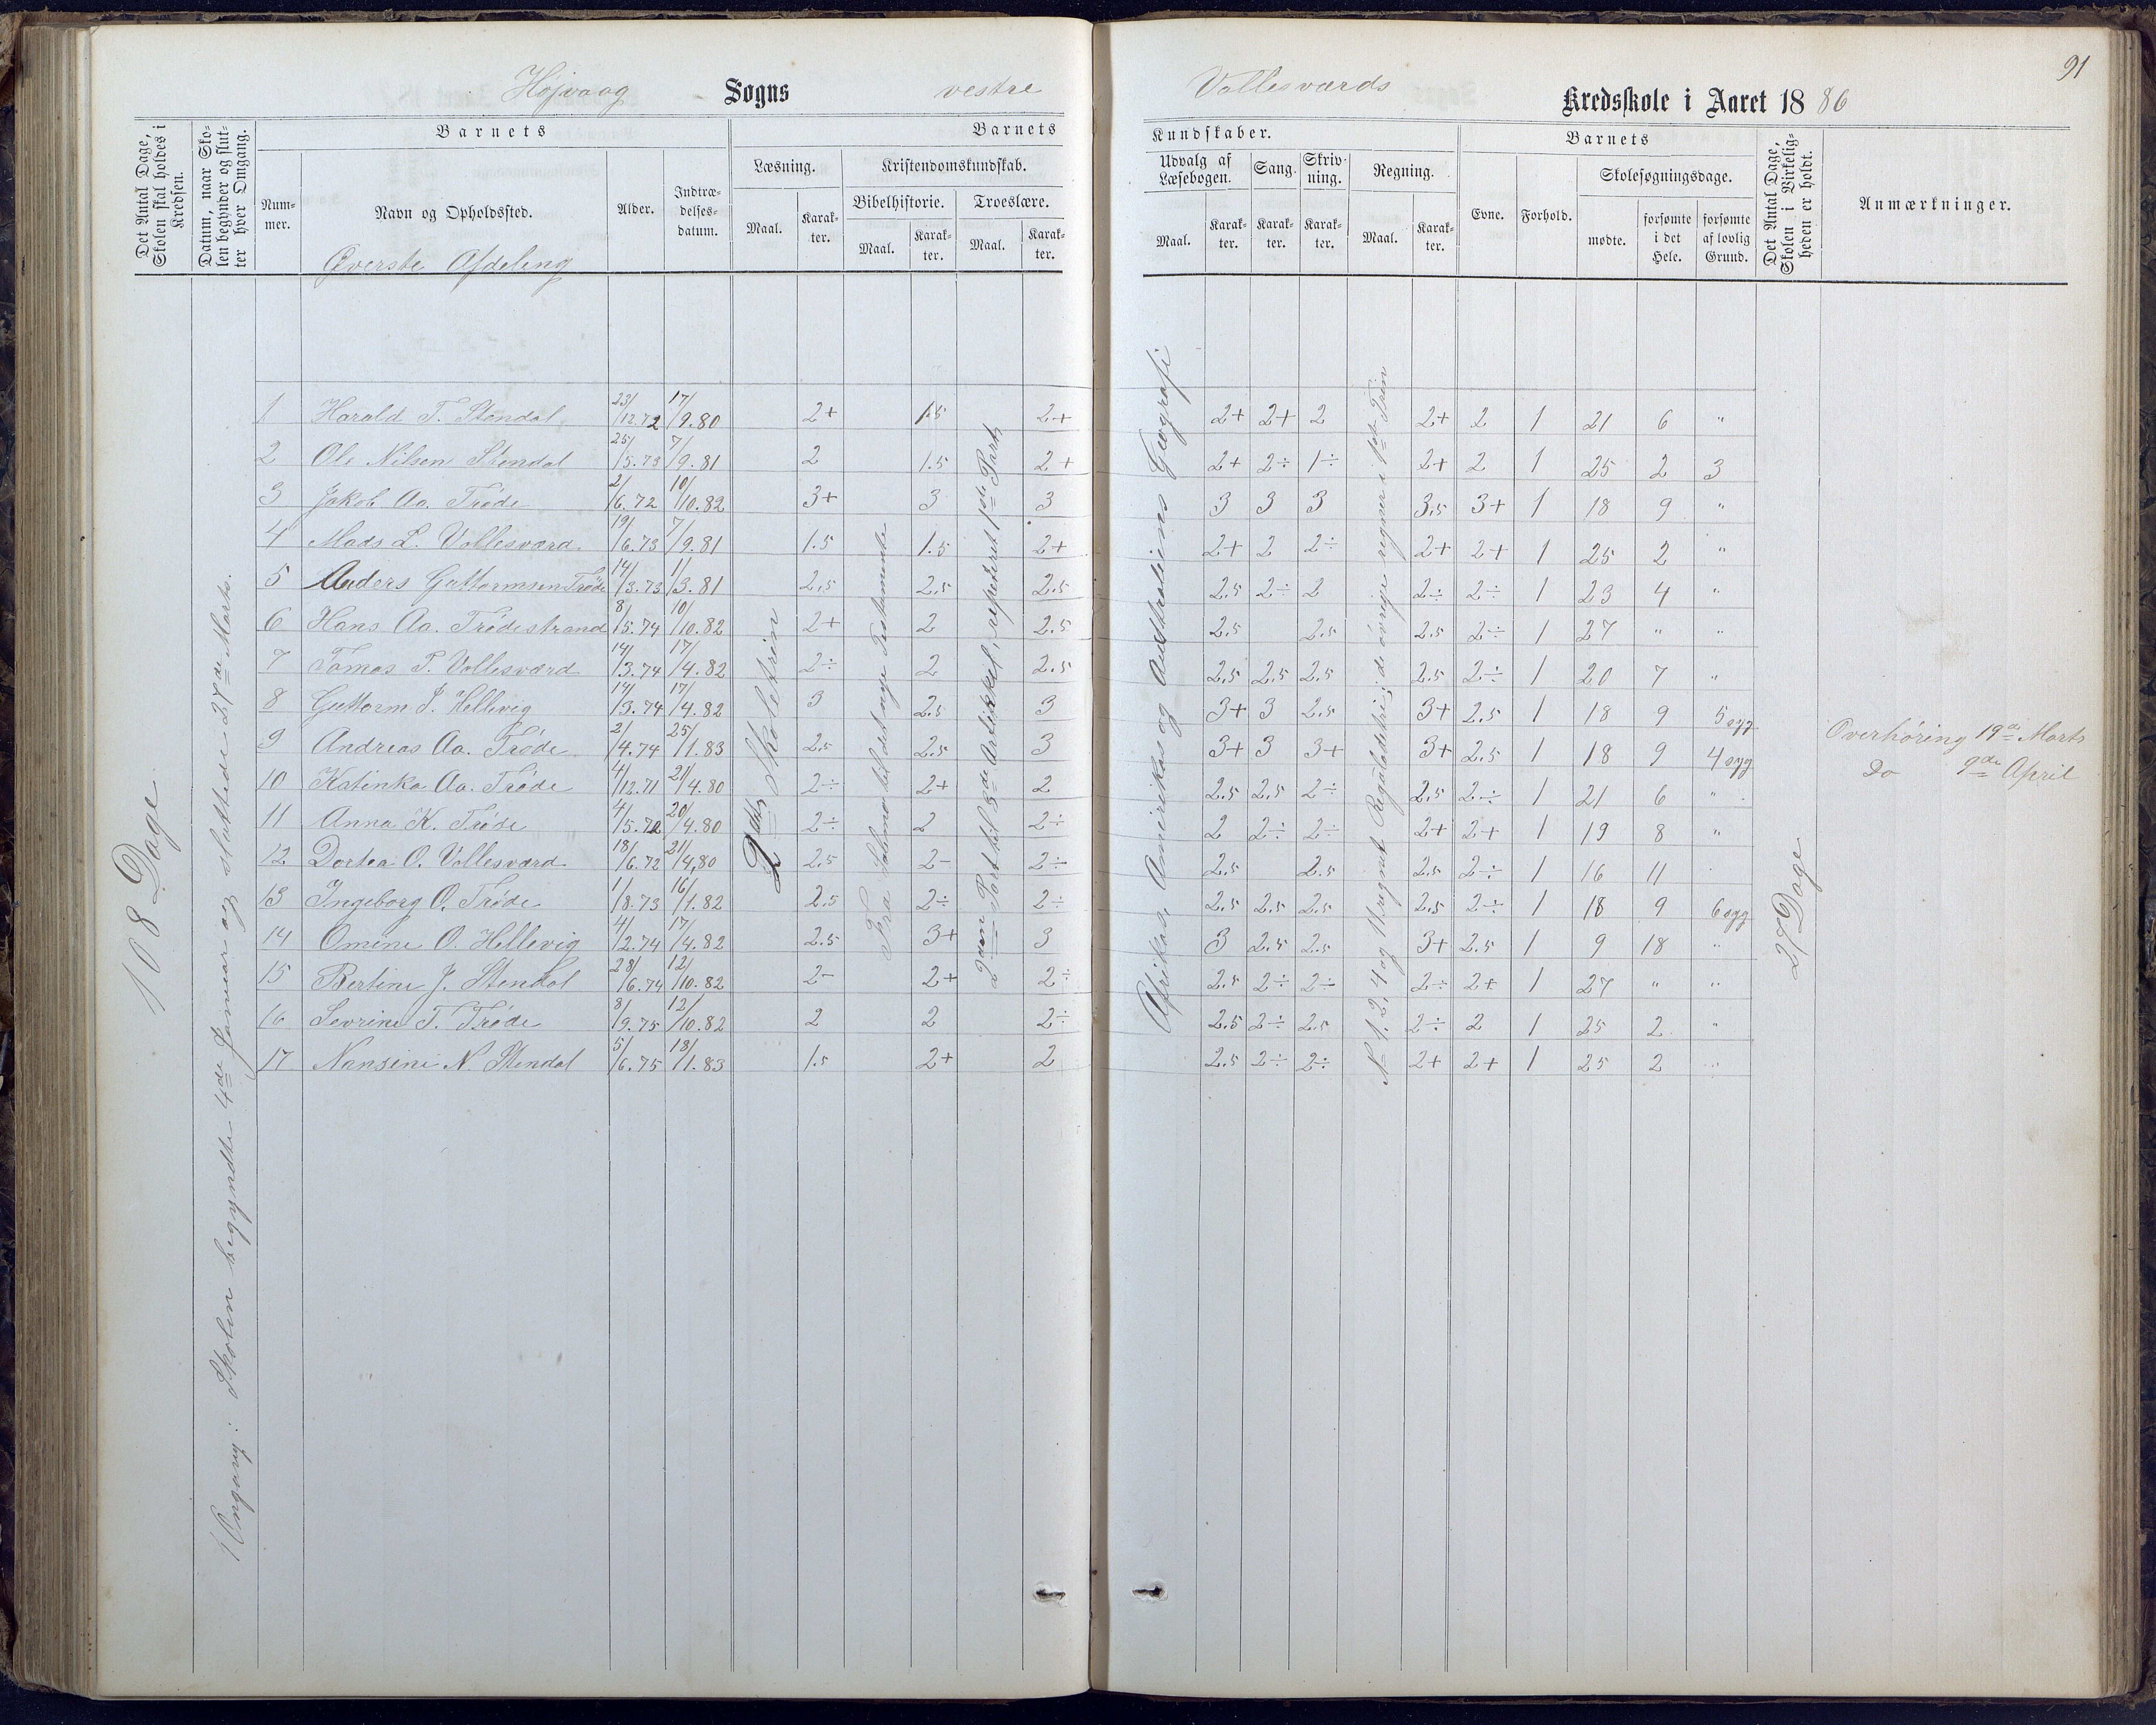 Højvaag Sogns vestre Vollesværds Kredsskole i Aaret 1886
91
Det Antal Dage, Skolen skal holdes i Kredsen.
Datum, naar Skolen begynder og slutter hver Omgang.
Barnets
Nummer.
Navn og Opholdssted.
Øverste Afdeling
Alder.
Indtrædelsesdatum.
Barnets
Læsning.
Maal.
Karakter.
Kristendomskundskab.
Bibelhistorie.
Maal.
Karakter.
Troeslære.
Maal.
Karakter.
Kundskaber.
Udvalg af Læsebogen.
Maal.
Karakter.
Sang.
Karakter.
Skrivning.
Karakter.
Regning.
Maal.
Karakter.
Barnets
Evne.
Forhold.
Skolesøgningsdage.
mødte.
forsømte i det Hele.
forsømte af lovlig Grund.
Det Antal Dage, Skolen i Virkeligheden er holdt.
Anmærkninger.
108 Dage
1 Omgang: Skolen begyndte 4de Januar og sluttede 27de Marts.
2det Skoletrin
Fra Salomo til det nye Testamente
2den Part til 3de Artikkel, repeteret 1ste Part
Afrikas, Amerikas og Australiens Geografi
No 1, 2, 4 og 11 regnet Regulædetri; de øvrige regner i 1ste Trin
27 Dage
1 Harald T. Stendal 23/12.72 17/9.80 2+ 1.5 2+ 2+ 2+ 2 2+ 2 1 21 6 "
2 Ole Nilsen Stendal 25/5.73 7/9.81 2 1.5 2+ 2+ 2÷ 1÷ 2+ 2 1 25 2 3
3 Jakob Aa. Trøde 2/6.72 10/10.82 3+ 3 3 3 3 3 3.5 3+ 1 18 9 "
4 Mads L. Vollesværd 19/6.73 7/9.81 1.5 1.5 2+ 2+ 2 2÷ 2+ 2+ 1 25 2 "
5 Anders Guttormsen Trøde 14/3.73 11/3.81 2.5 2.5 2.5 2.5 2÷ 2 2÷ 2÷ 1 23 4 "
6 Hans Aa. Trødestrand 8/5.74 10/10.82 2+ 2 2.5 2.5 2.5 2.5 2÷ 1 27 " "
7 Tomas T. Vollesværd 14/3.74 17/4.82 2÷ 2 2.5 2.5 2.5 2.5 2.5 2÷ 1 20 7 "
8 Guttorm J. Hellevig 14/3.74 17/4.82 3 2.5 3 3+ 3 2.5 3+ 2.5 1 18 9 5 syg
9 Andreas Aa. Trøde 2/4.74 25/1.83 2.5 2.5 3 3+ 3 3+ 3+ 2.5 1 18 9 4 syg
10 Katinka Aa. Trøde 4/12.71 21/4.80 2÷ 2+ 2 2.5 2.5 2÷ 2.5 2÷ 1 21 6 "
11 Anna K. Trøde 4/5.72 20/4.80 2÷ 2 2÷ 2 2÷ 2÷ 2+ 2+ 1 19 8 "
12 Dortea O. Vollesværd 18/6.72 21/4.80 2.5 2- 2÷ 2.5 2.5 2.5 2÷ 1 16 11
13 Ingeborg O. Trøde 1/8.73 16/1.82 2.5 2÷ 2÷ 2.5 2.5 2.5 2.5 2÷ 1 18 9 6 syg
14 Omine O. Hellevig 4/2.74 17/4.82 2.5 3+ 3 3 2.5 2.5 3+ 2.5 1 9 18 "
15 Bertine J. Stendal 28/6.74 12/10.82 2- 2+ 2÷ 2.5 2÷ 2÷ 2÷ 2+ 1 27 " "
16 Sevrine T. Trøde 8/9.75 12/10.82 2 2 2÷ 2.5 2÷ 2.5 2÷ 2 1 25 2 "
17 Nansine N. Stendal 5/6.75 18/1.83 1.5 2+ 2 2.5 2÷ 2÷ 2+ 2+ 1 25 2 "
Overhøring 19de Marts
Do 9de April